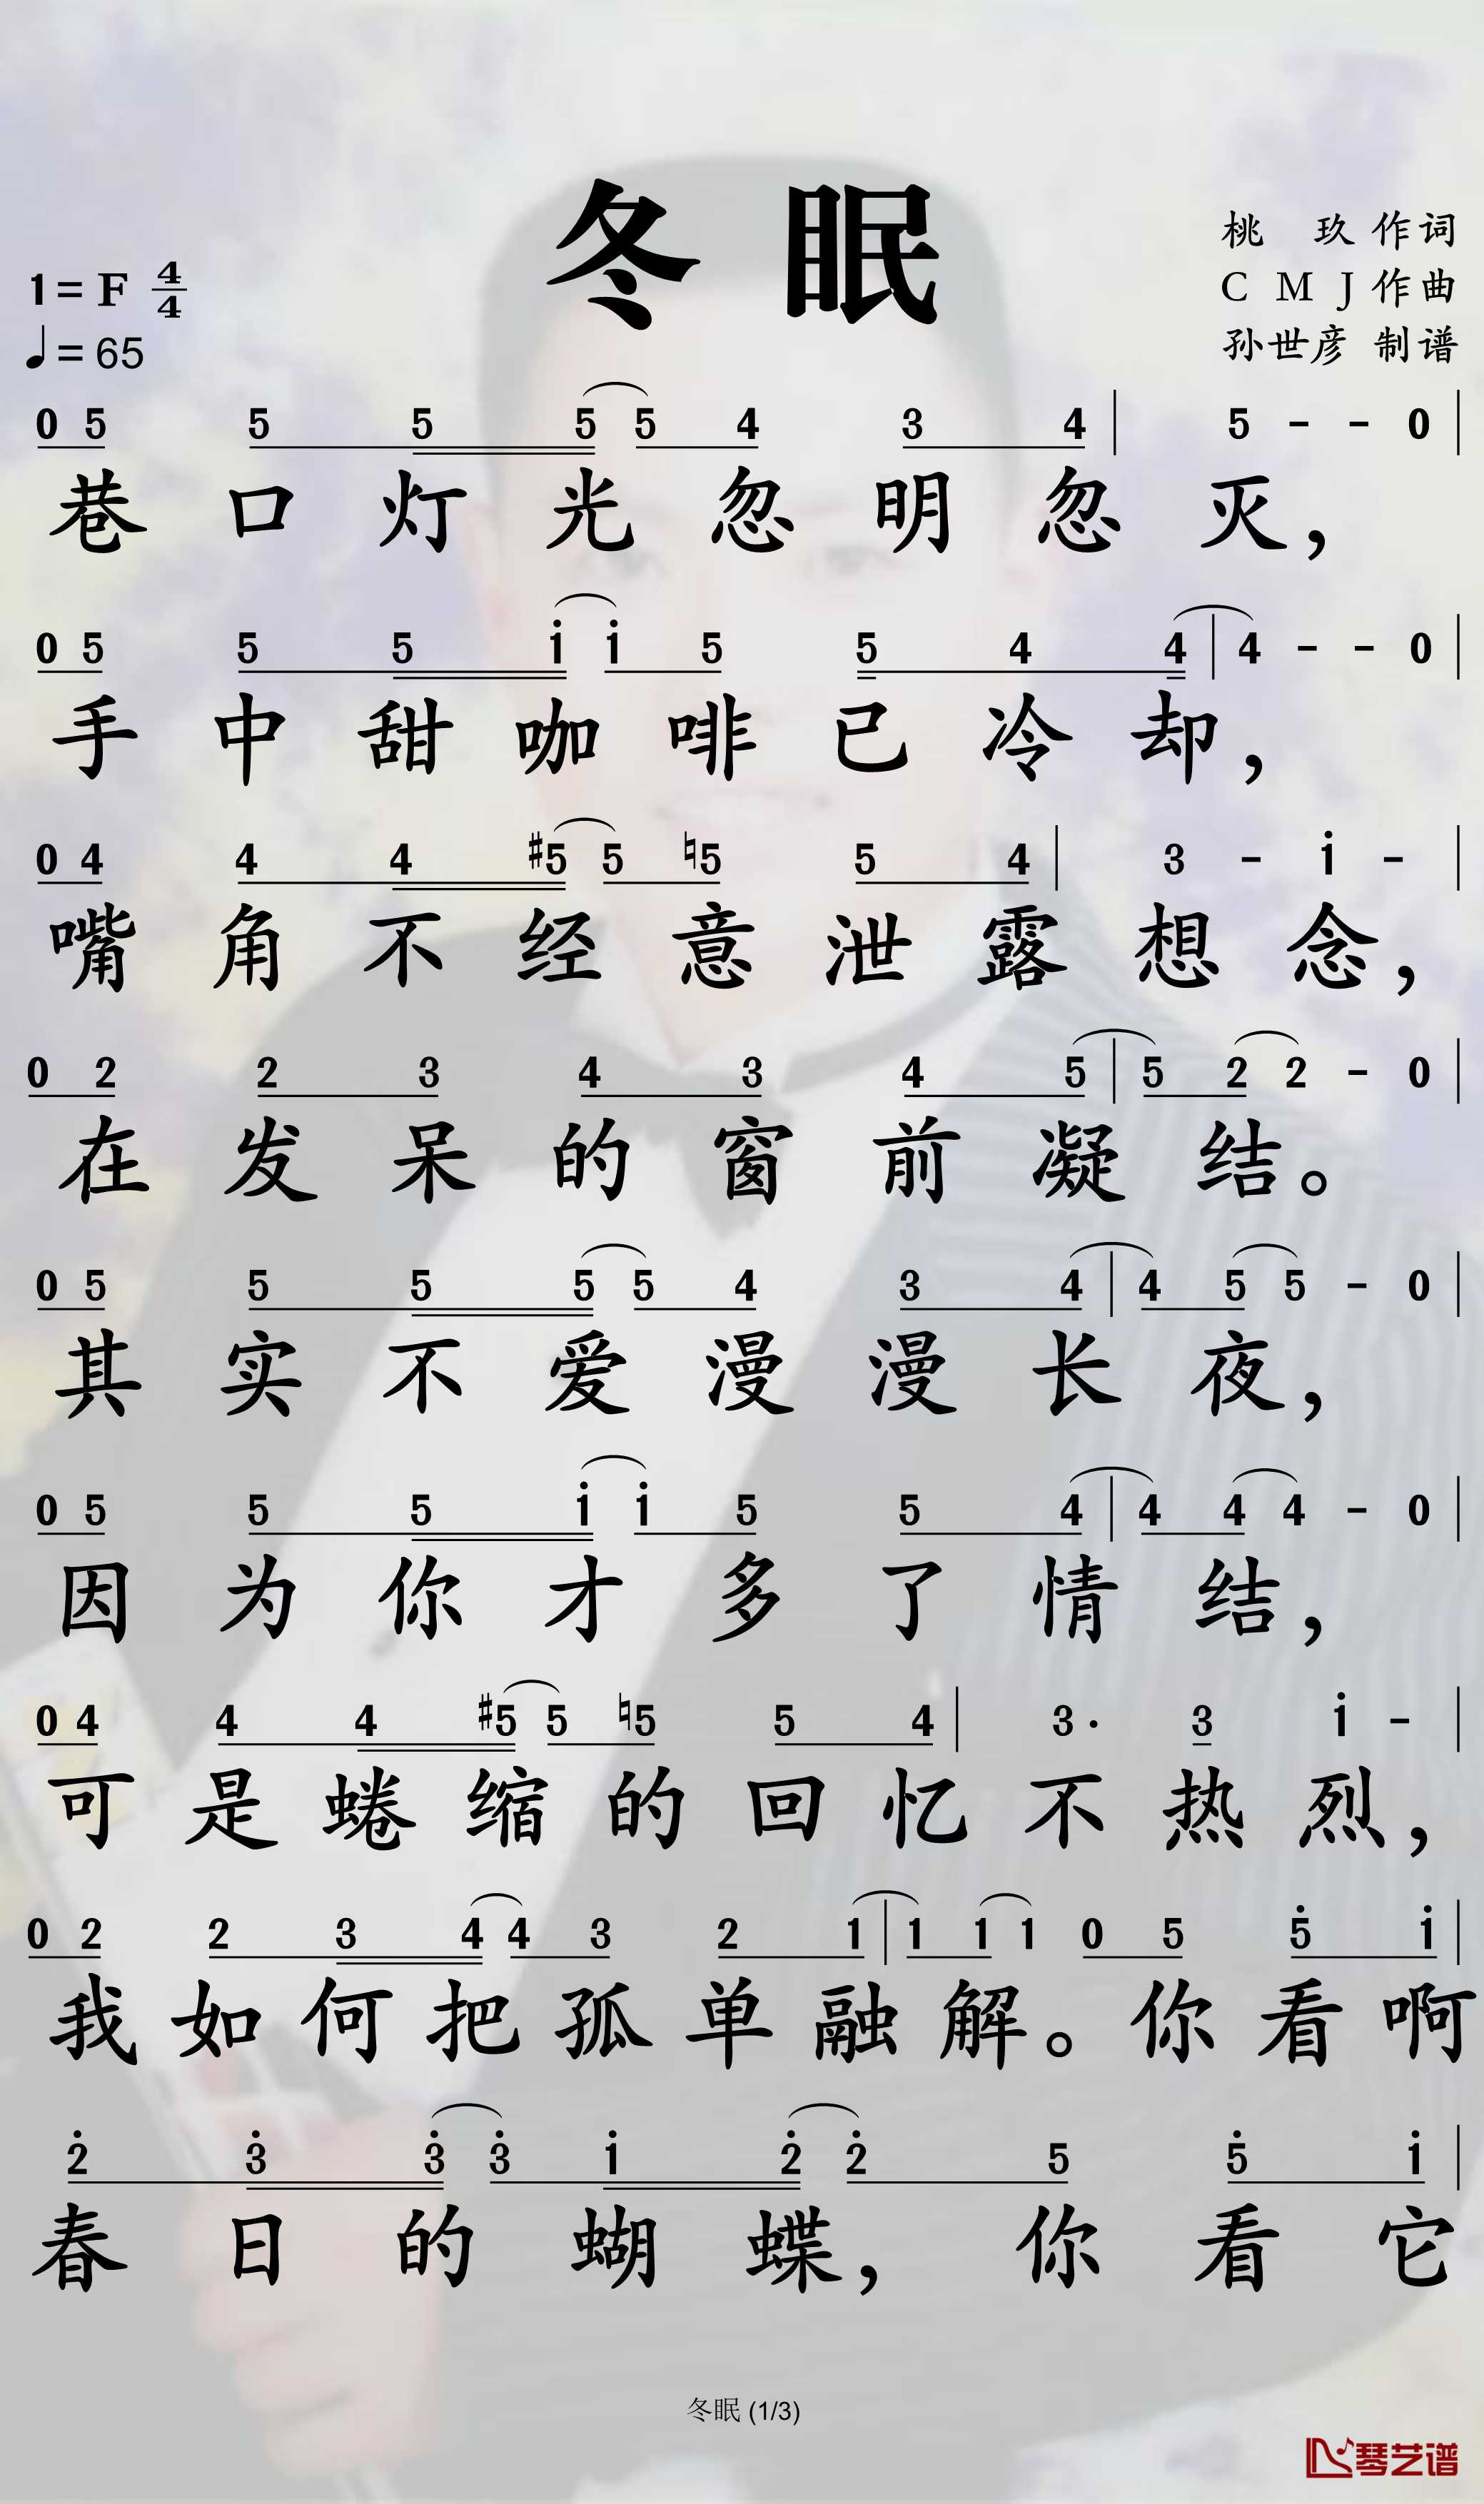 冬眠
桃 玖 作词
1=F 4/4
C M J 作曲
♩=65
孙世彦 制谱
0 5 5 5 5 5 4 3 4 | 5 - - 0 |
巷口灯光忽明忽灭，
0 5 5 5 i i 5 5 4 4 | 4 - - 0 |
手中甜咖啡已冷却，
0 4 4 4 #5 5 ♮5 5 4 | 3 - i - |
嘴角不经意泄露想念，
0 2 2 3 4 3 4 5 | 5 2 2 - 0 |
在发呆的窗前凝结。
0 5 5 5 5 5 4 3 4 | 4 5 5 - 0 |
其实不爱漫漫长夜，
0 5 5 5 i i 5 5 4 | 4 4 4 - 0 |
因为你才多了情结，
0 4 4 4 #5 5 ♮5 5 4 | 3· 3 i - |
可是蜷缩的回忆不热烈，
0 2 2 3 4 4 3 2 1 | 1 1 1 0 5 5̇ i |
我如何把孤单融解。你看啊
2̇ 3̇ 3̇ 3̇ i 2̇ 2̇ 5 5̇ i |
春日的蝴蝶，你看它
冬眠 (1/3)
琴艺谱